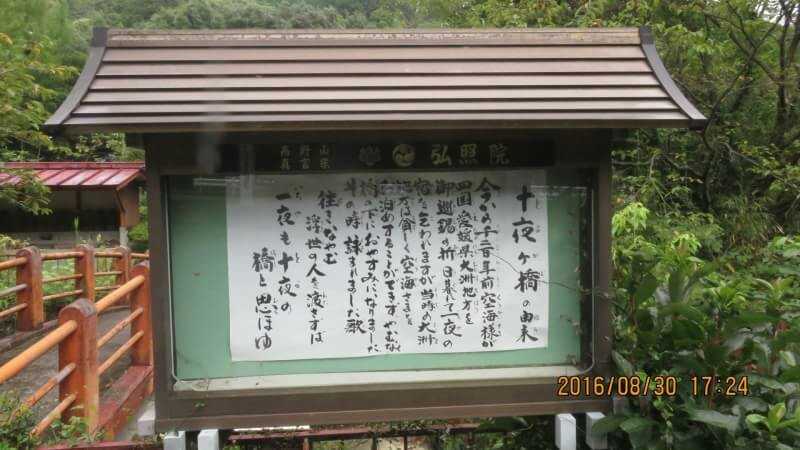 高野山
真言宗
弘照院
十夜ヶ橋の由来
今から千二百年前空海様が
四国愛媛県大洲地方を
御巡錫の折日暮に一夜の
宿を乞われますが当時の大洲
地方は貧しく空海さまを
お泊めすることができず、やむなく
橋の下におやすみになりました
その時詠まれました歌
往きなやむ
浮世の人を渡さずば
一夜も十夜の
橋と思ほゆ
2016/08/30 17:24